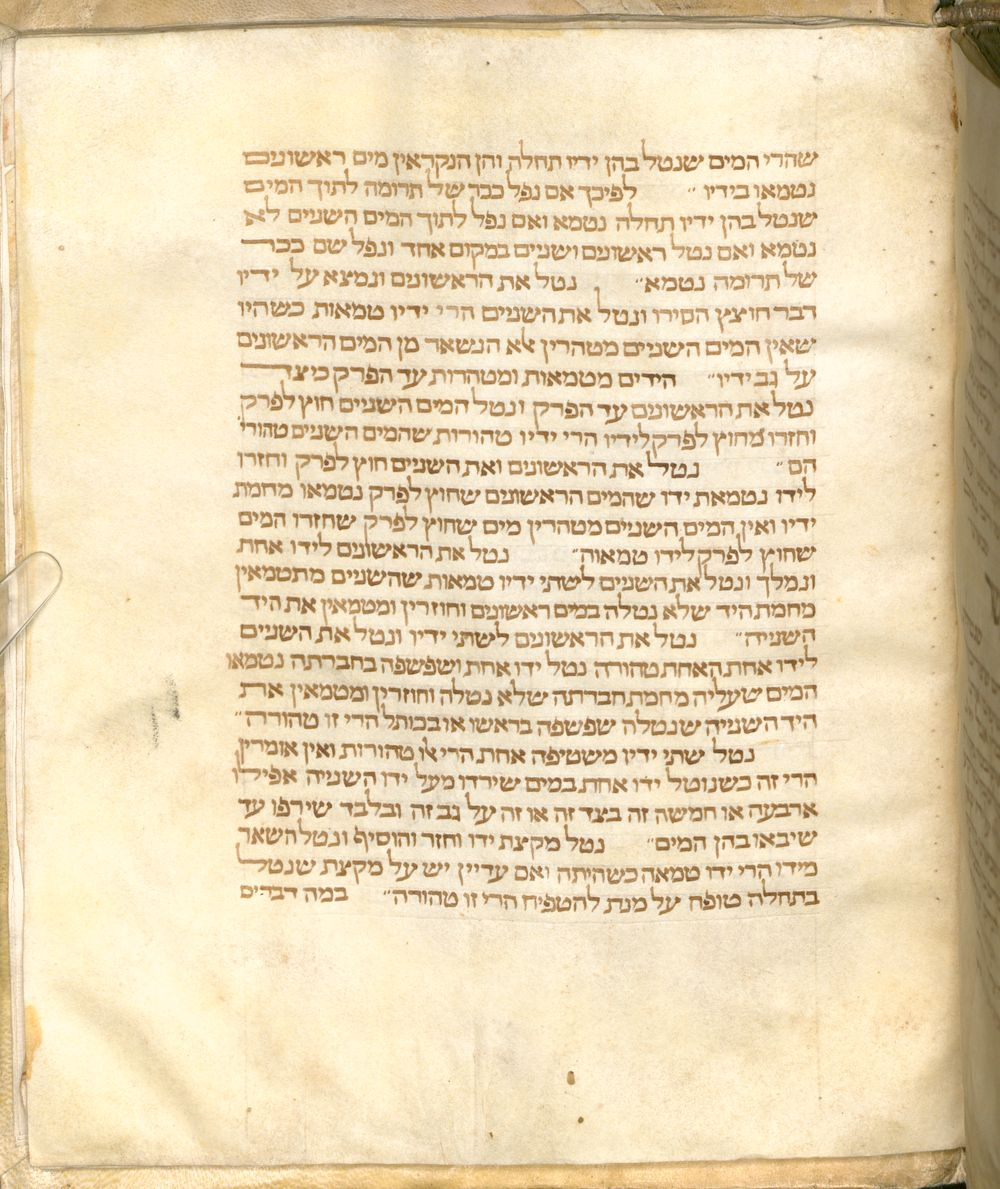 שהרי המים שנטל בהן ידיו תחלה והן הנקראין מים ראשונים
נטמאו בידיו ״ לפיכך אם נפל ככר של תרומה לתוך המים
שנטל בהן ידיו תחלה נטמא ואם נפל לתוך המים השנים לא
נטמא ואם נטל ראשונים ושניים במקום אחד ונפל שם ככר
של תרומה נטמא״ נטל את הראשונים ונמצא על ידיו
דבר חוצץ הסירו ונטל את השנים הרי ידיו טמאות כשהיו
שאין המים השניים מטהרין אלא הנשאר מן המים הראשונים
על גב ידיו״ הידים מטמאות ומטהרות עד הפרק כיצד
נטל את הראשונים עד הפרק ונטל המים השנים חוץ לפרק
וחזרו מחוץ לפרק לידיו הרי ידיו טהורות שהמים השנים טהורי׳
הם״ נטל את הראשונים ואת השנים חוץ לפרק וחזרו
לידו נטמאת ידו שהמים הראשונים שחוץ לפרק נטמאו מחמת
ידיו ואין המים השניים מטהרין מים שחוץ לפרק שחזרו המים
שחוץ לפרק לידו טמאוה״ נטל את הראשונים לידו אחת
ונמלך ונטל את השנים לשתי ידיו טמאות שהשנים מתטמאין
מחמת היד שלא נטלה במים ראשונים וחוזרין ומטמאין את היד
השנייה״ נטל את הראשונים לשתי ידיו ונטל את השנים
לידו אחת האחת טהורה נטל ידו אחת ושפשפה בחברתה נטמאו
המים שעליה מחמת חברתה שלא נטלה וחוזרין ומטמאין את
היד השנייה שנטלה שפשפה בראשו או בכותל הרי זו טהורה״
נטל שתי ידיו משטיפה אחת הרי אלו טהורות ואין אומרין
הרי זה כשנוטל ידו אחת במים שירדו מעל ידו השניה אפילו
ארבעה או חמשה זה בצד זה או זה על גב זה ובלבד שירפו עד
שיבאו בהן המים״ נטל מקצת ידו וחזר והוסיף ונטל השאר
מידו הרי ידו טמאה כשהיתה ואם עדיין יש על מקצת שנטל
בתחלה טופח על מנת להטפיח הרי זו טהורה״ במה דברים